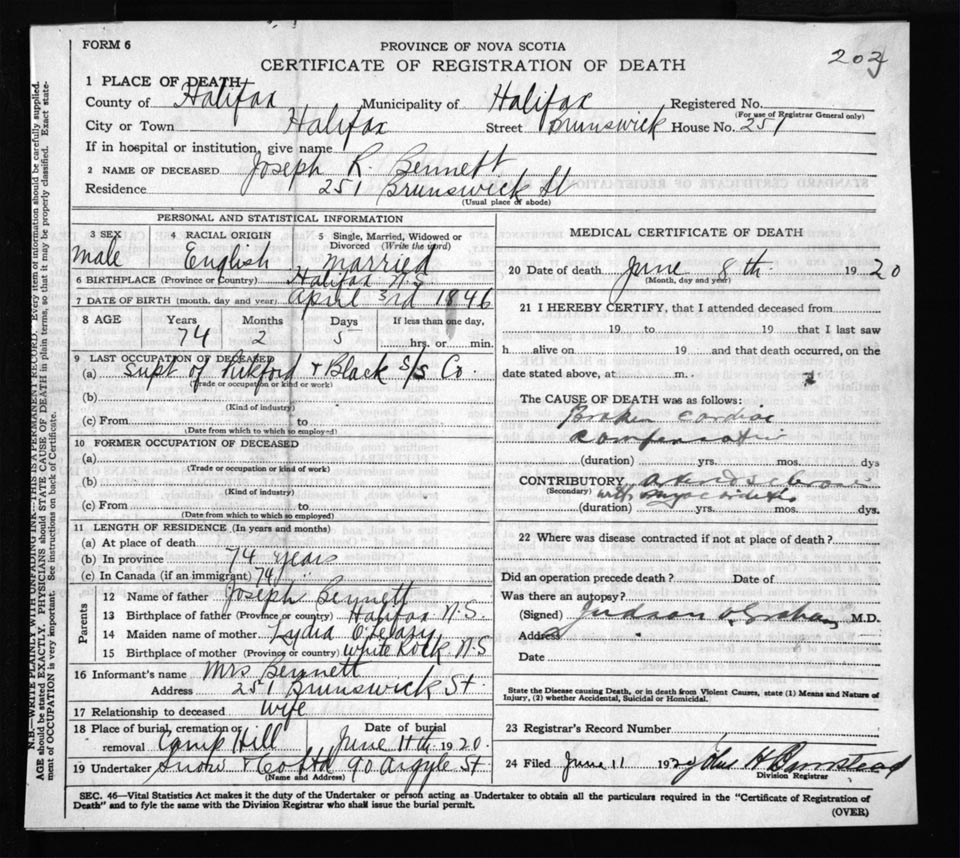 FORM 6
PROVINCE OF NOVA SCOTIA
203
CERTIFICATE OF REGISTRATION OF DEATH
1 PLACE OF DEATH
County of Halifax Municipality of Halifax Registered No.
(For use of Registrar General only)
City or Town Halifax Street Brunswick House No. 251
If in hospital or institution, give name
2 NAME OF DECEASED Joseph R. Bennett
Residence 251 Brunswick St
(Usual place of abode)
PERSONAL AND STATISTICAL INFORMATION
3 SEX 4 RACIAL ORIGIN 5 Single, Married, Widowed or Divorced (Write the word)
Male English Married
6 BIRTHPLACE (Province or Country) Halifax N.S.
7 DATE OF BIRTH (month, day and year) April 3rd 1846
8 AGE Years Months Days If less than one day,
74 2 5 hrs. or min.
9 LAST OCCUPATION OF DECEASED
(a) Supt of Pickford & Black S/S Co.
(Trade or occupation or kind or work)
(b)
(Kind of industry)
(c) From to
(Date from which to which so employed)
10 FORMER OCCUPATION OF DECEASED
(a)
(Trade or occupation or kind of work)
(b)
(Kind of industry)
(c) From to
(Date from which to which so employed)
11 LENGTH OF RESIDENCE (In years and months)
(a) At place of death
(b) In province 74 years
(c) In Canada (if an immigrant) 74 "
Parents
12 Name of father Joseph Bennett
13 Birthplace of father (Province or country) Halifax N.S.
14 Maiden name of mother Lydia
15 Birthplace of mother (Province or country) White Rock. N.S
16 Informant's name Mrs Bennett
Address 251 Brunswick St.
17 Relationship to deceased Wife
18 Place of burial, cremation or removal Camp Hill Date of burial June 11th 1920.
19 Undertaker Snow & Co Ltd 90 Argyle St
(Name and Address)
MEDICAL CERTIFICATE OF DEATH
20 Date of death June 8th 1920
(Month, day and year)
21 I HEREBY CERTIFY, that I attended deceased from
19 to 19 that I last saw
h alive on 19 and that death occurred, on the
date stated above, at m.
The CAUSE OF DEATH was as follows:
Broken cardiac
compensation
(duration) yrs. mos. dys
CONTRIBUTORY
(Secondary) with
(duration) yrs. mos. dys.
22 Where was disease contracted if not at place of death?
Did an operation precede death? Date of
Was there an autopsy?
(Signed) Judson V. Graham M.D.
Address
Date
State the Disease causing Death, or in death from Violent Causes, state (1) Means and Nature of
Injury, (2) whether Accidental, Suicidal or Homicidal.
23 Registrar's Record Number
24 Filed June 11 1920 John H Barnstead
Division Registrar
SEC. 46—Vital Statistics Act makes it the duty of the Undertaker or person acting as Undertaker to obtain all the particulars required in the "Certificate of Registration of
Death" and to fyle the same with the Division Registrar who shall issue the burial permit.
(OVER)
N.B.—WRITE PLAINLY WITH UNFADING INK—THIS IS A PERMANENT RECORD. Every item of information should be carefully supplied.
AGE should be stated EXACTLY. PHYSICIANS should STATE CAUSE OF DEATH in plain terms, so that it may be properly classified. Exact state-
ment of OCCUPATION is very important. See instructions on back of Certificate.